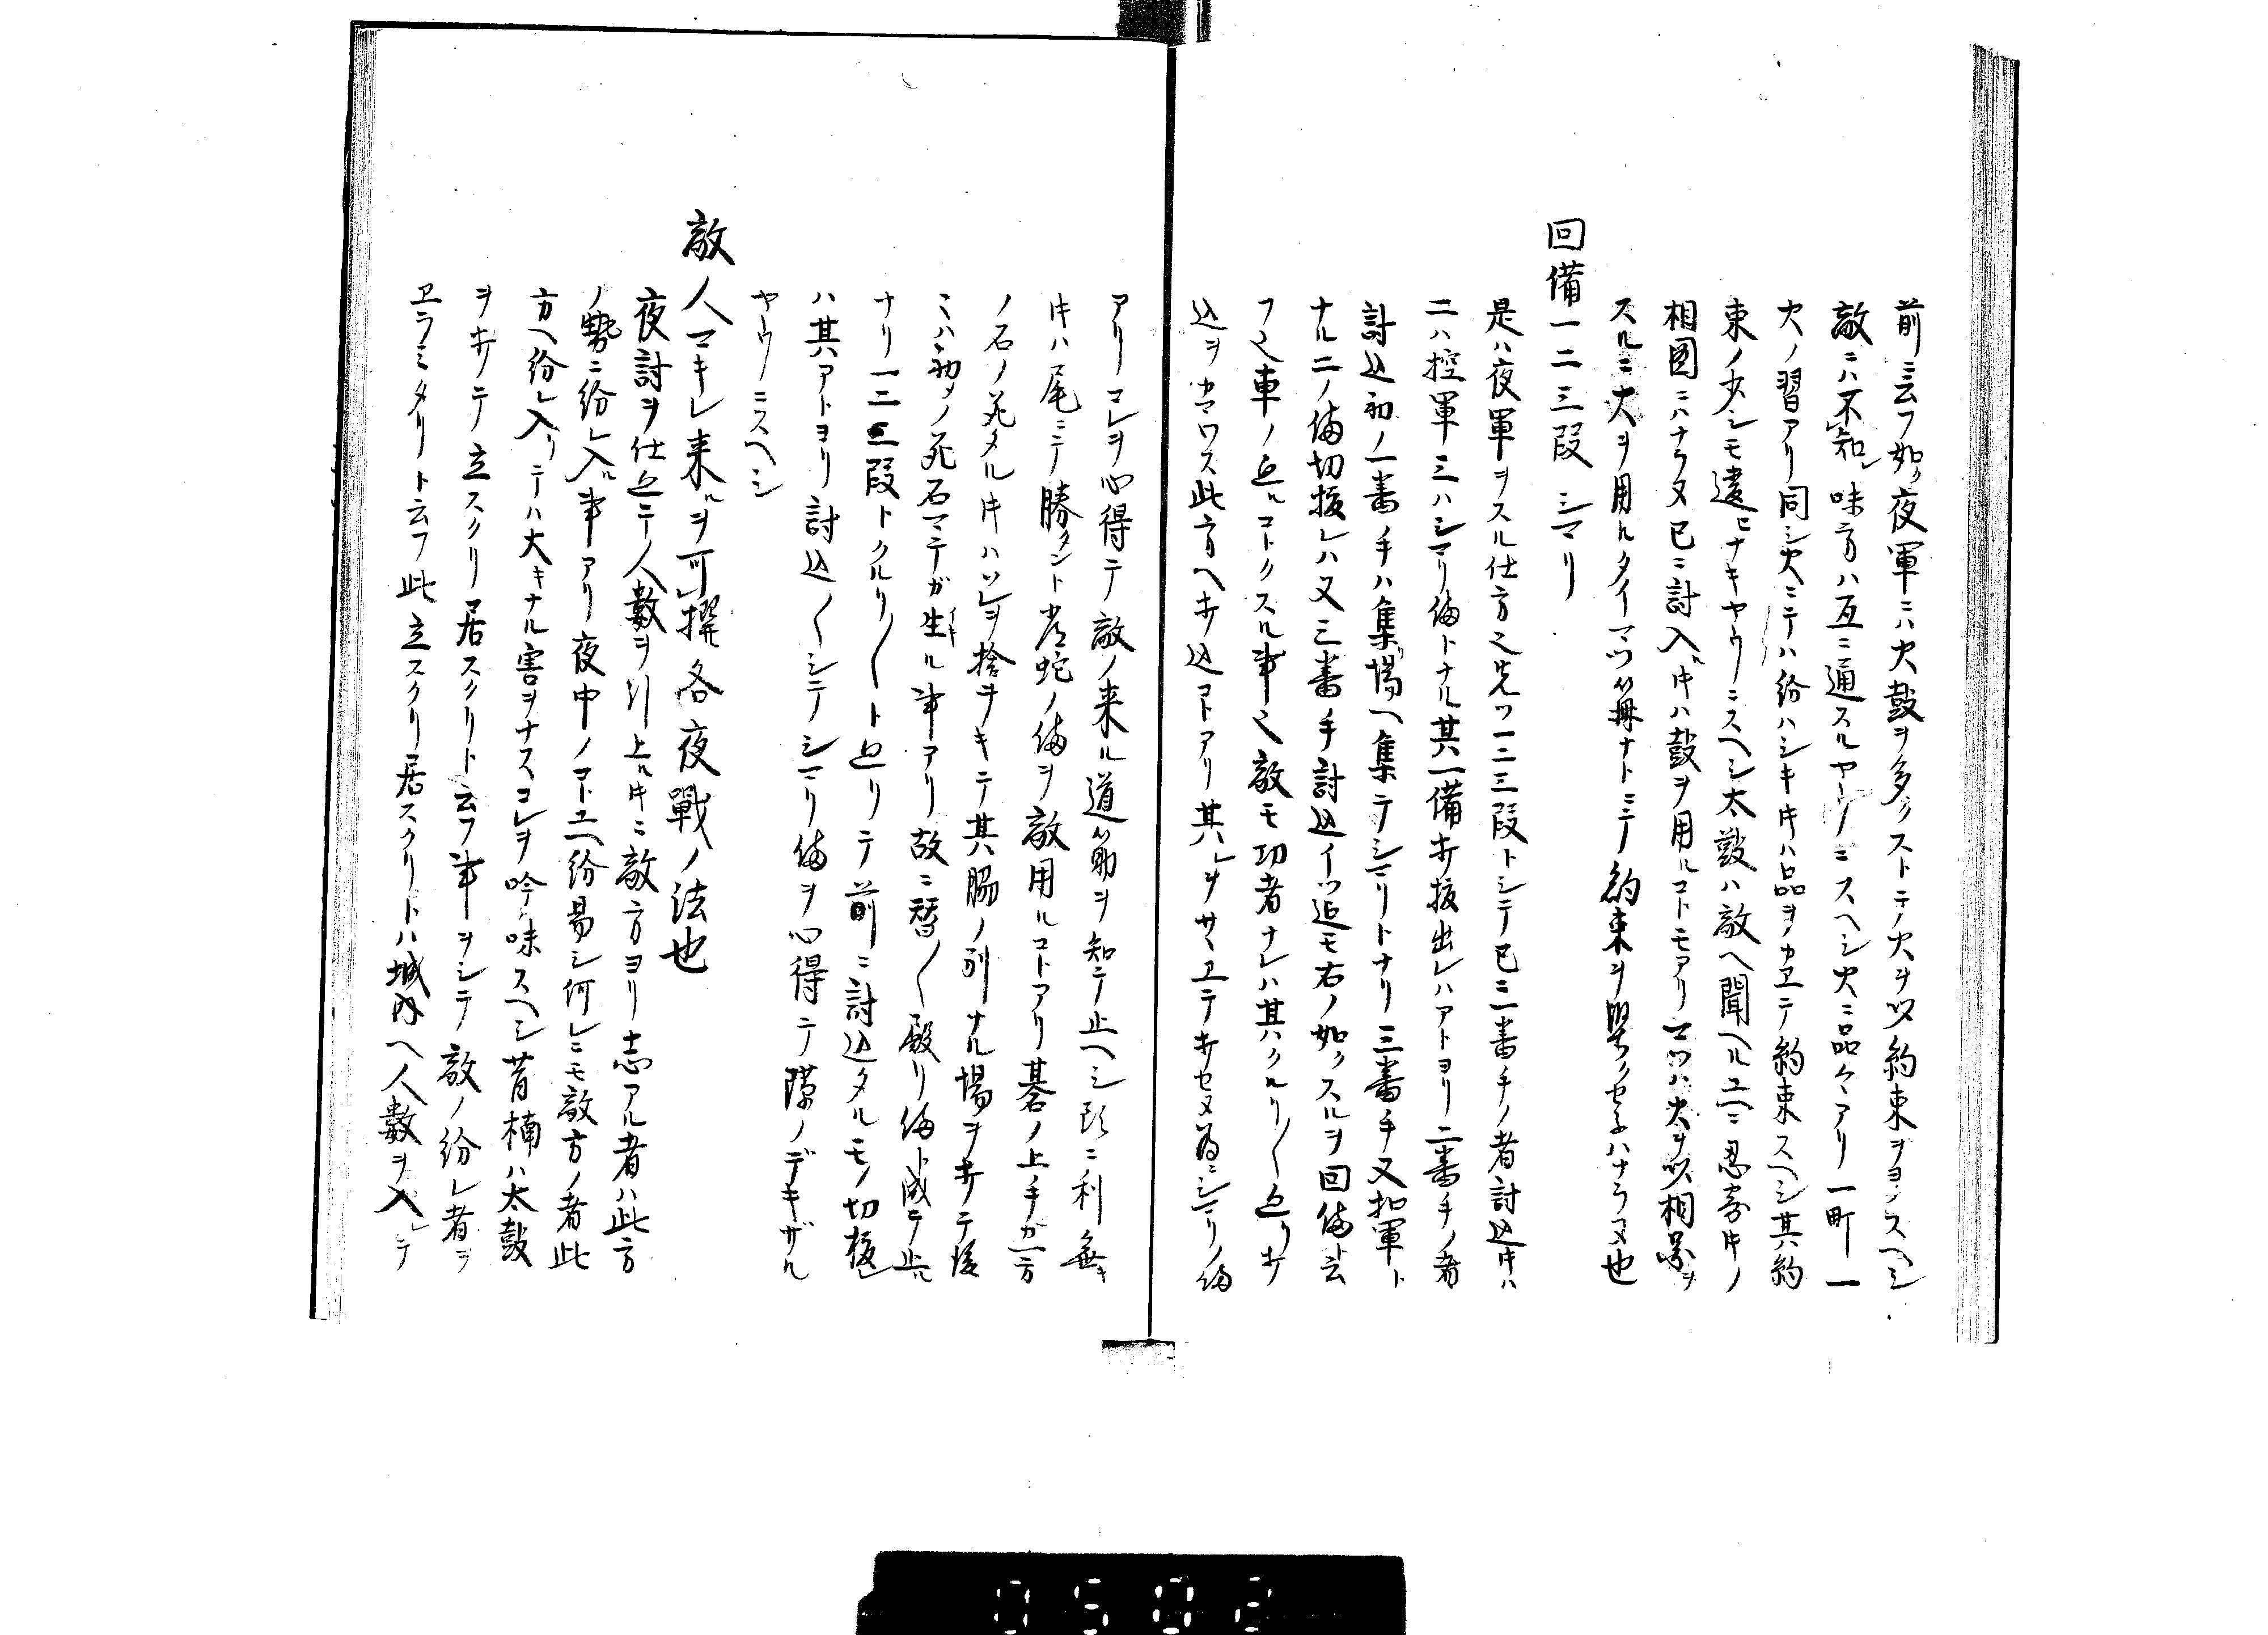 前ニ云フ如ク夜軍ニハ火鼓ヲ多クストテノ火ヲ以約束ヲヨクスヘシ
敵ニハ不知レ味方ハ互ニ通スルヤウニスヘシ火ニ品々アリ一町一
火ノ習アリ同シ火ニテハ紛ハシキ㐧ハ品ヲカヱテ約束スヘシ其約
束ノ少シモ違ヒナキヤウニスヘシ太鼓ハ敵ヘ聞ヘルユヘニ忍寄㐧ノ
相圖ニハナラヌ已ニ討入ル㐧ハ鼓ヲ用ルコトモアリマツハ火ヲ以相圖ヲ
スルニ火ヲ用ルタイマツ篝ナトニテ約束ヲ堅クセネハナラヌ也
回備一二三段シマリ
是ハ夜軍ヲスル仕方也先ツ一二三段トシテ已ニ一番手ノ者討込㐧ハ
二ハ控軍三ハシマリ備トナル其一備ホ抜出レハアトヨリ二番手ノ者
討込初ノ一番手ハ集リ場ヘ集テシマリトナリ三番手又扣軍ト
ナル二ノ備切抜レハ又三番手討込イツ迄モ右ノ如クスルヲ回備ト云
フ也車ノ廻ルコトクスル事也敵モ功者ナレハ其ハクルリ〱廻リホ
込ヲカマワス此方ヘホ込コトアリ其レヲサヽヱテホセヌ為ニシマリノ備
アリコレヲ心得テ敵ノ来ル道筋ヲ知テ止ヘシ頭ニ利無キ
㐧ハ尾ニテ勝タント常蛇ノ備ヲ敵用ルコトアリ碁ノ上手ガ一方
ノ石ノ死タル㐧ハソレヲ捨ヲキテ其脇ノ別ナル場ヲホテ後
ニハ初メノ死石マテガ生ル事アリ故ニ替〱殿リ備ト成テ止ル
ナリ一二三段トクルリ〱ト廻リテ前ニ討込タルモノ切抜レ
ハ其アトヨリ討込〱シテシマリ備ヲ心得テ隙ノデキザル
ヤウニスヘシ
敵ノ人マキレ来ルヲ可撰各夜戰ノ法也
夜討ヲ仕廻テ人數ヲ引上ル㐧ニ敵方ヨリ志アル者ハ此方
ノ勢ニ紛レ入ル事アリ夜中ノコトユヘ紛易シ何レニモ敵方ノ者此
方ヘ紛レ入リテハ大キナル害ヲナスコレヲ吟味スヘシ昔楠ハ太鼓
ヲホテ立スクリ居スクリト云フ事ヲシテ敵ノ紛レ者ヲ
ヱラミタリト云フ此立スクリ居スクリトハ城内ヘ人數ヲ入レテ